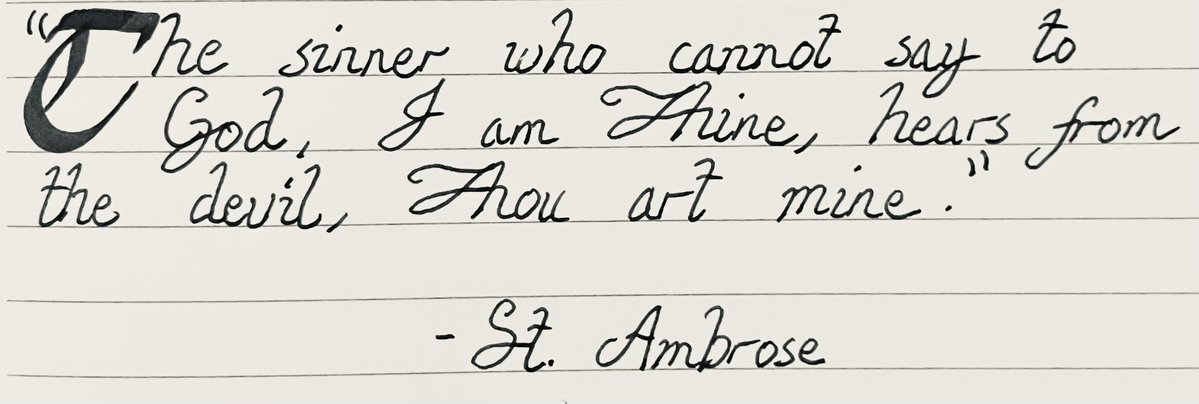 "The sinner who cannot say to
God, I am Thine, hears from
the devil, Thou art mine."
- St. Ambrose